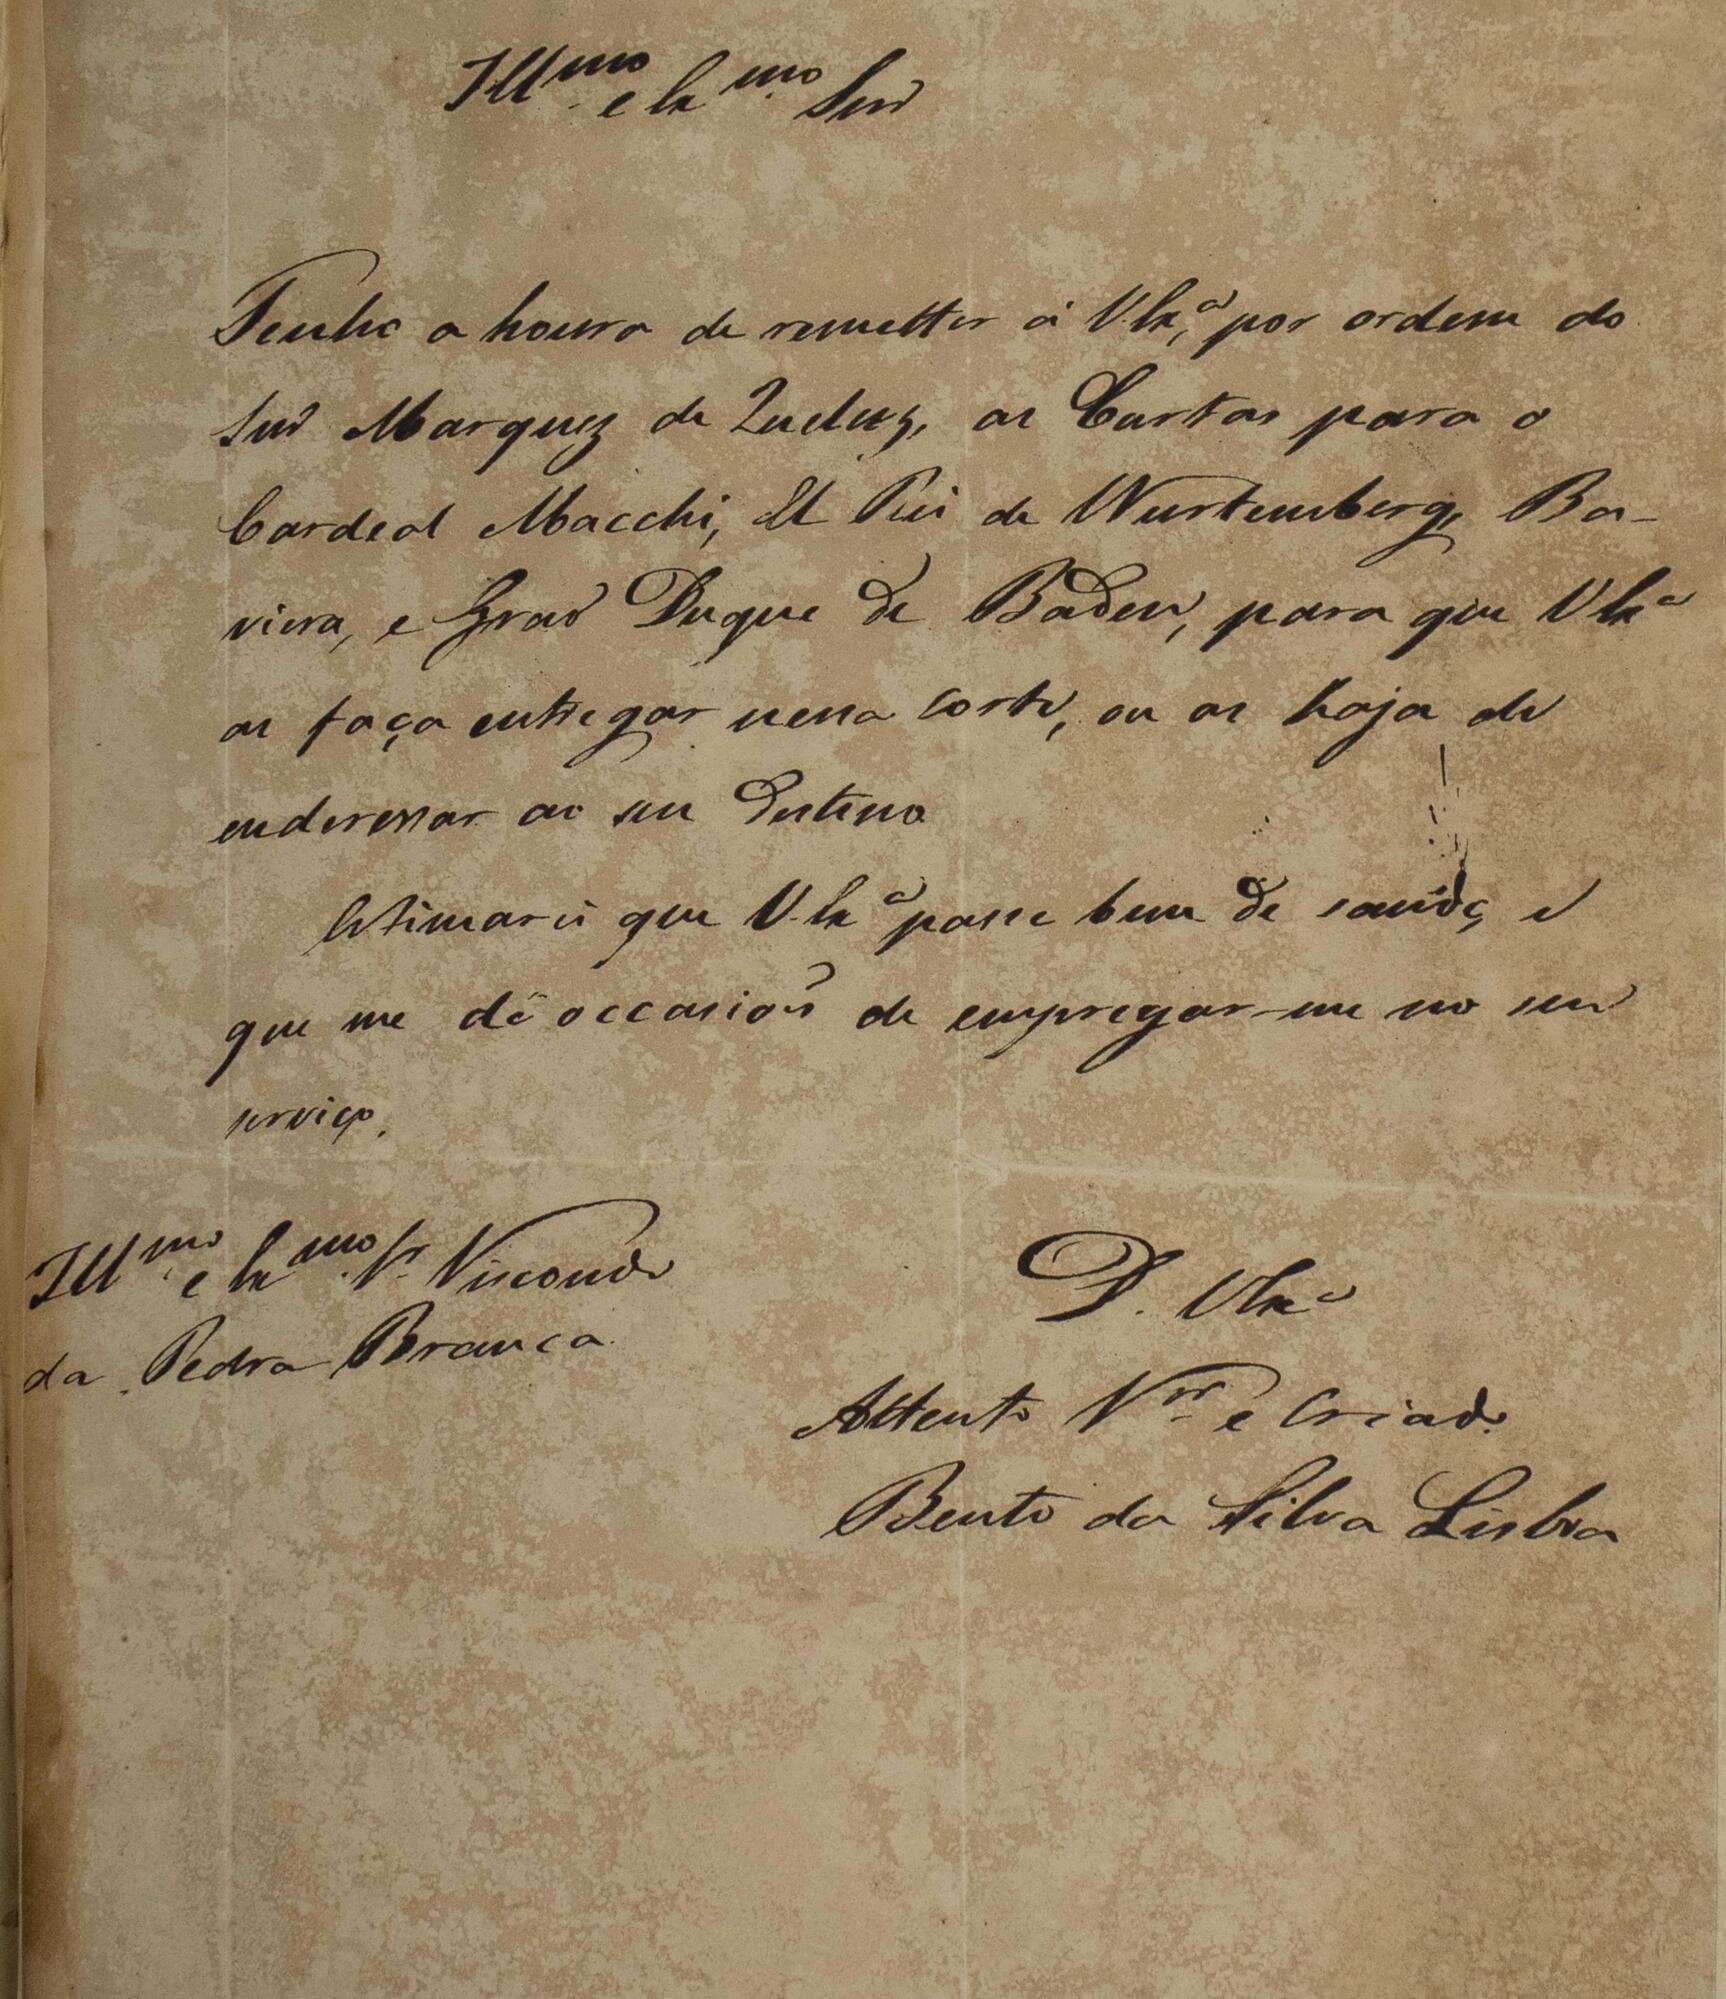 Ill.mo e Ex.mo Snr
Tenho a honra de remetter á V. Ex.a, por ordem do
Snr Marquez de Queluz, as Cartas para o
Cardeal Macchi, El Rei de Wurtemberg, Ba-
viera, e Grao Duque de Baden, para que V Ex.a
as faça entregar nessa corte, ou as haja de
enderessar ao seu destino
Estimarei que V. Ex.a passe bem de saude, e
que me dê occasiaõ de empregar-me no seu
serviço.
Ill.mo e Ex.mo Sr Visconde
da Pedra Branca
D. V Ex.a
Attento V.or e Criado
Bento da Silva Lisboa